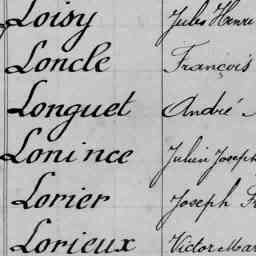 Loisy Jules Henri
Loncle François
Longuet André
Lonince Julien Joseph
Lorier Joseph
Lorieux Victor Mar